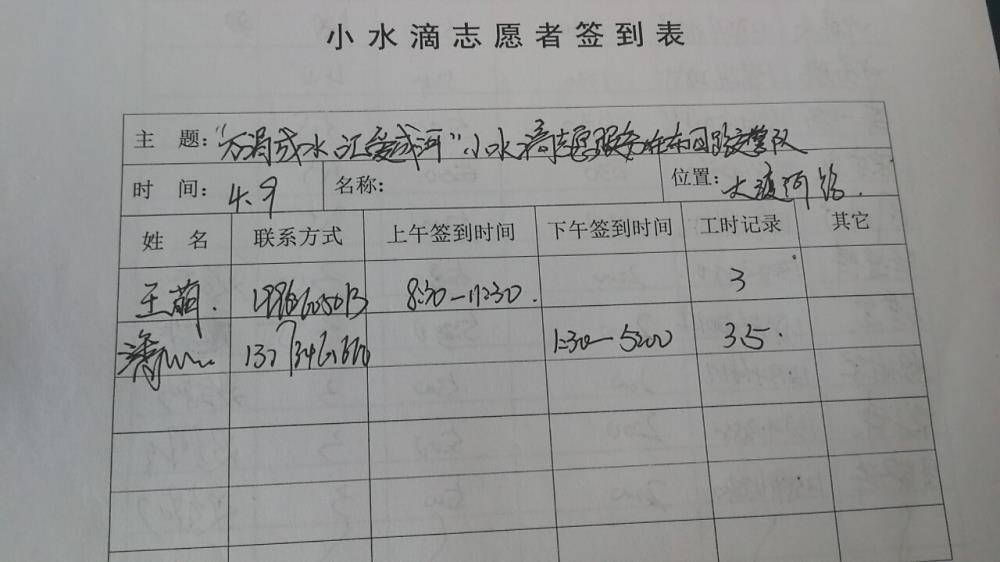 小水滴志愿者签到表
主 题：“方涓成水 汇爱成河”小水滴志愿服务
时 间： 4.9 名称： 位置： 大渡河路.
姓 名 联系方式 上午签到时间 下午签到时间 工时记录 其它
王萌. 8:30—11:30. 3
1:30—5:00 3.5.